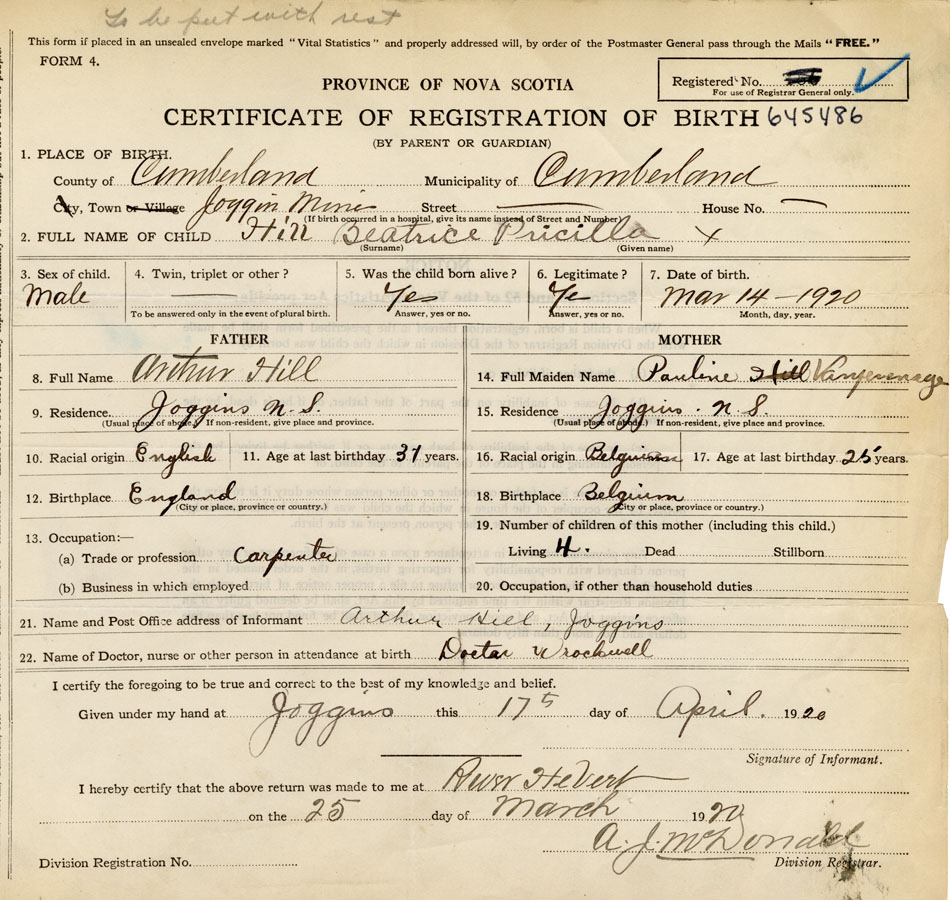 To be put with rest
This form if placed in an unsealed envelope marked "Vital Statistics" and properly addressed will, by order of the Postmaster General pass through the Mails "FREE."
FORM 4.
Registered No.
For use of Registrar General only.
PROVINCE OF NOVA SCOTIA
CERTIFICATE OF REGISTRATION OF BIRTH 645486
(BY PARENT OR GUARDIAN)
1. PLACE OF BIRTH.
County of Cumberland Municipality of Cumberland
City, Town or Village Joggin Mines Street — House No. —
(If birth occurred in a hospital, give its name instead of Street and Number)
2. FULL NAME OF CHILD Hill Beatrice Pricilla x
(Surname) (Given name)
3. Sex of child. 4. Twin, triplet or other? 5. Was the child born alive? 6. Legitimate? 7. Date of birth.
Male — Yes Ye Mar 14 - 1920
To be answered only in the event of plural birth. Answer, yes or no. Answer, yes or no. Month, day, year.
FATHER
8. Full Name Arthur Hill
9. Residence Joggins N.S.
(Usual place of abode.) If non-resident, give place and province.
10. Racial origin English 11. Age at last birthday 31 years.
12. Birthplace England
(City or place, province or country.)
13. Occupation:—
(a) Trade or profession Carpenter
(b) Business in which employed
MOTHER
14. Full Maiden Name Pauline Hill
15. Residence Joggins. N.S.
(Usual place of abode.) If non-resident, give place and province.
16. Racial origin Belgium 17. Age at last birthday 25 years.
18. Birthplace Belgium
(City or place, province or country.)
19. Number of children of this mother (including this child.)
Living 4. Dead Stillborn
20. Occupation, if other than household duties
21. Name and Post Office address of Informant Arthur Hill, Joggins
22. Name of Doctor, nurse or other person in attendance at birth Doctor
I certify the foregoing to be true and correct to the best of my knowledge and belief.
Given under my hand at Joggins this 17 day of April. 1920
Signature of Informant.
I hereby certify that the above return was made to me at River Hebert
on the 25 day of March 1920
A. J. McDonald
Division Registration No. Division Registrar.